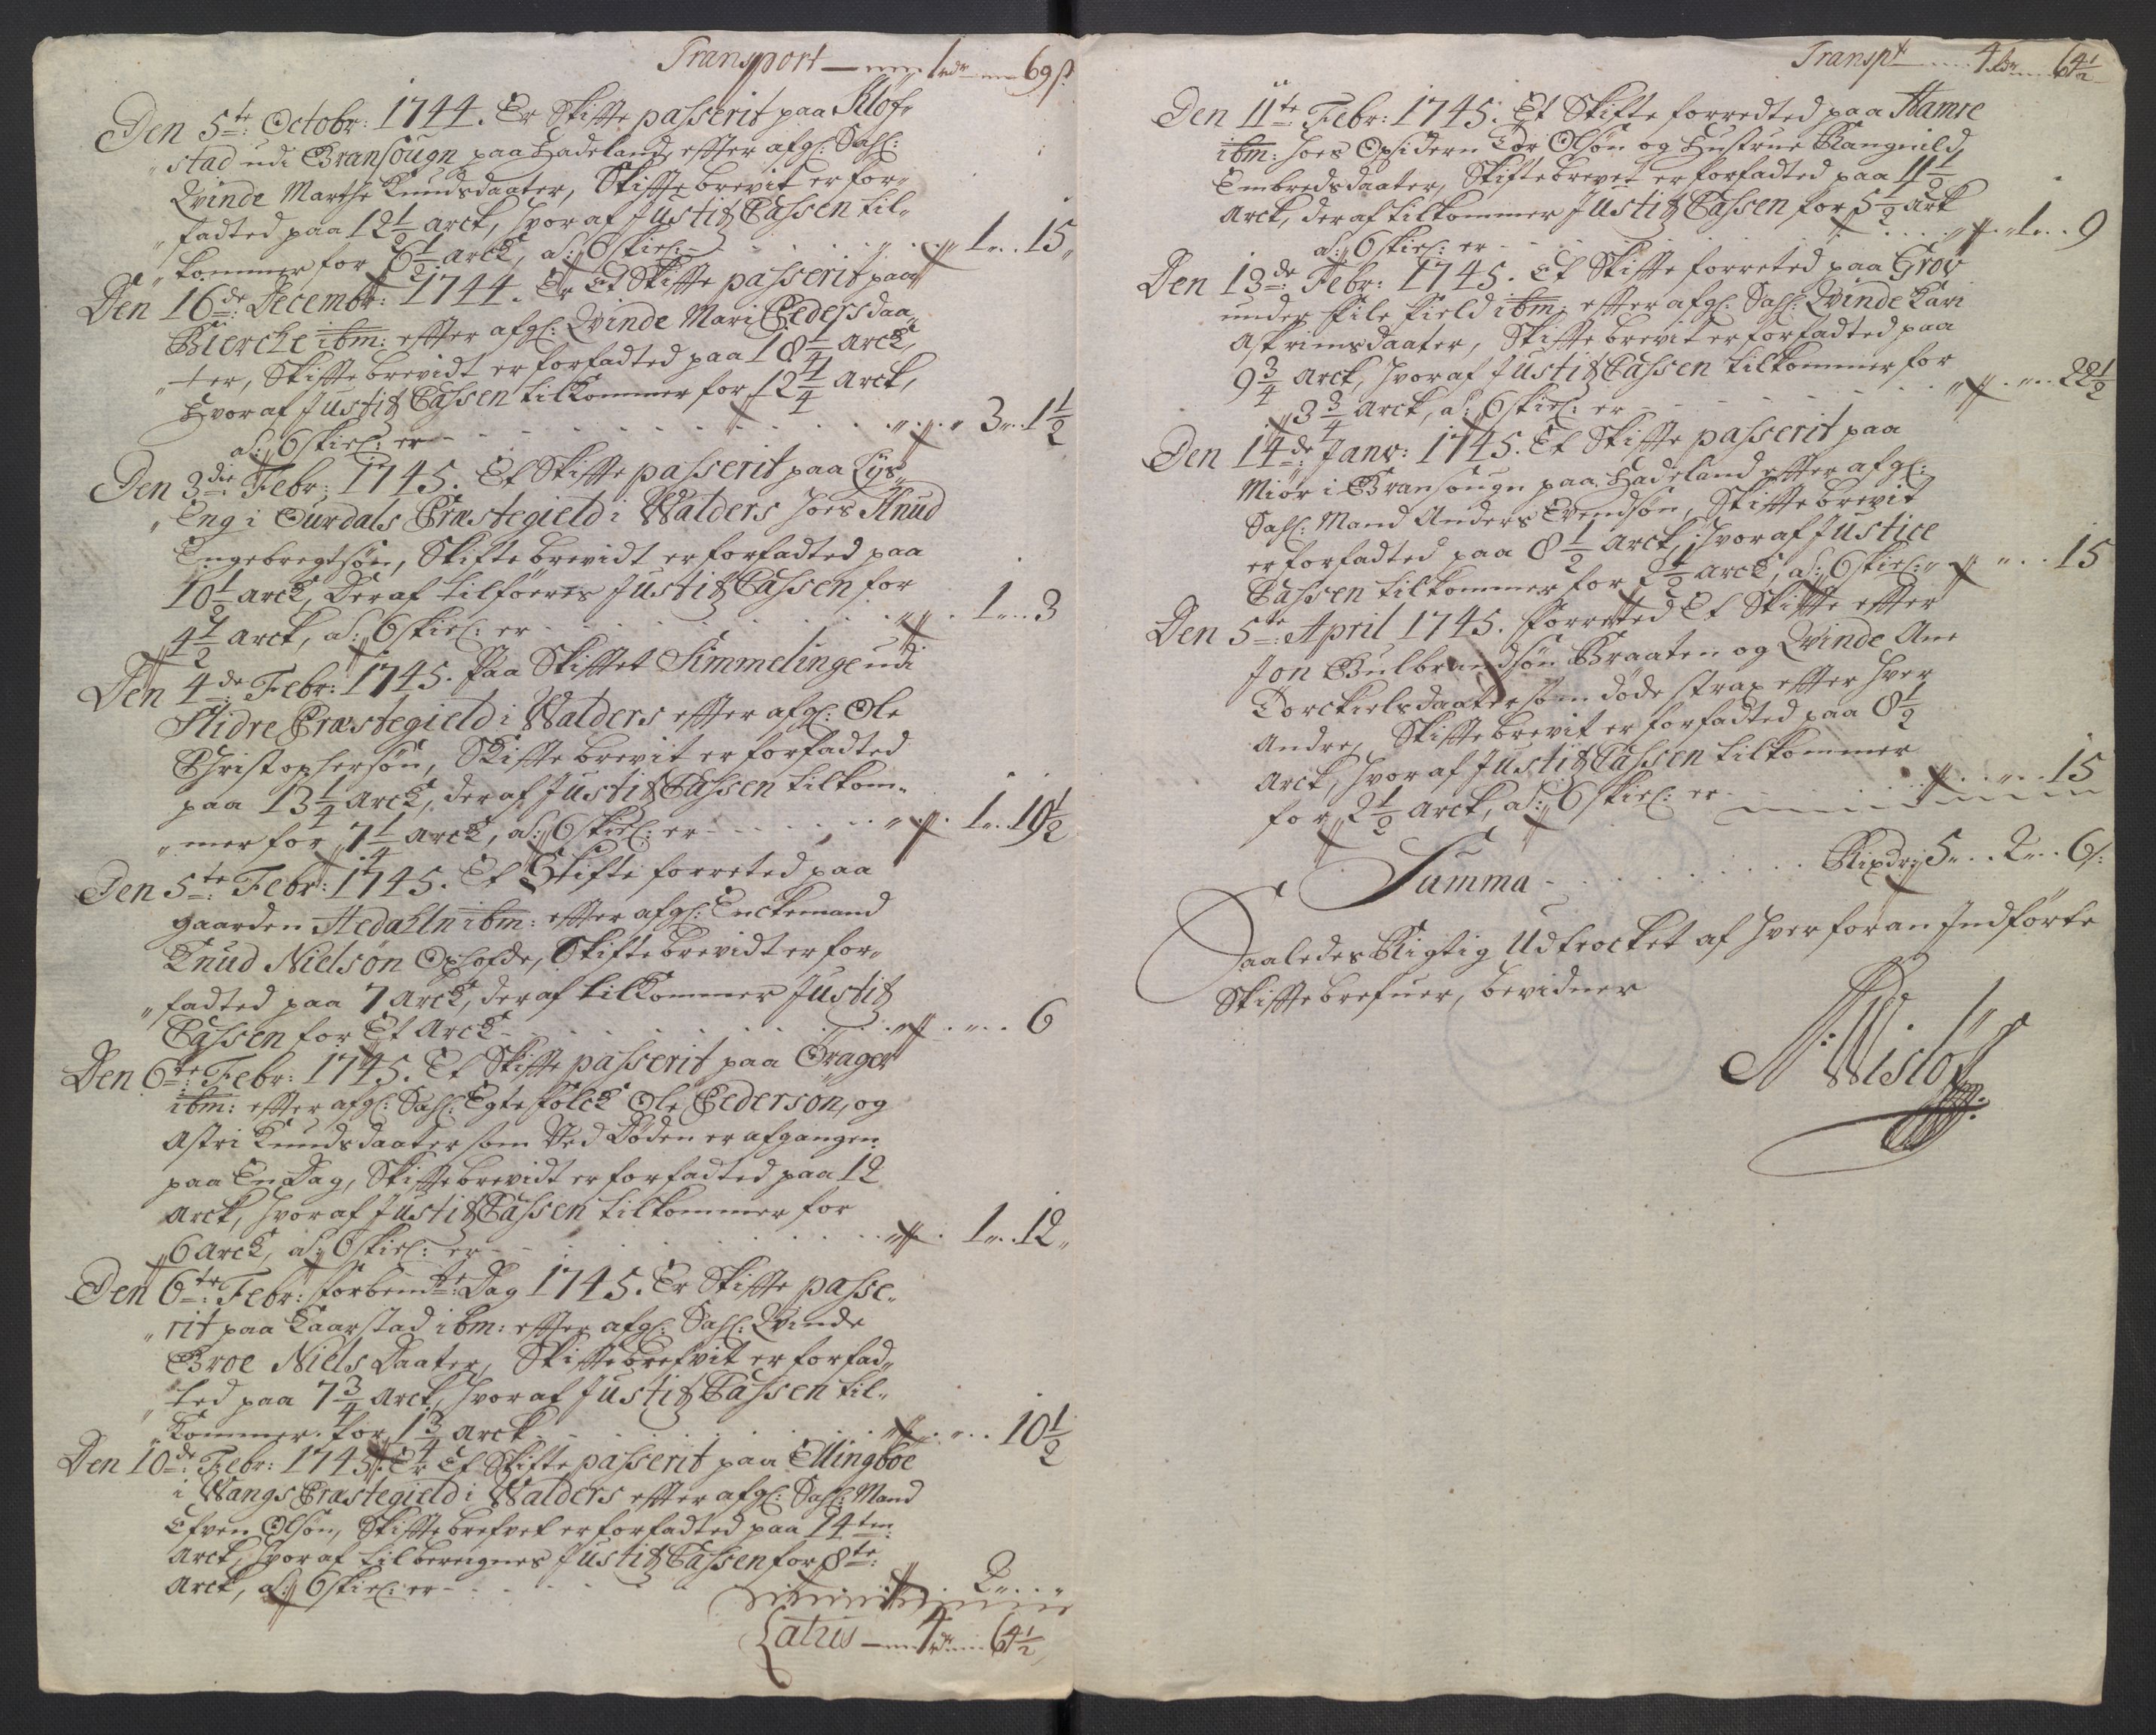 Transport — 1 rdr — 69 s:
Den 5te: Octobr: 1744. Er Skifte passerit paa Klof-
stad udi Gransougn paa Hadeland, effter afg: Sahl:
Qvinde Marthe Knudsdaater, Skiftebrevit er for-
fadted paa 12 1/2 arck, hvoraf Justitz Cassen til-
kommer for 6 1/2 arck, a: 6 skiel: - 1 .. 15
Den 16de: Decembr: 1744. Er Et Skifte passerit paa
Biercke ibm: effter afg: Qvinde Mari Pedersdaa-
ter, Skiftebrevidt er forfadted paa 18 1/4 arck,
Hvoraf Justitz Cassen tilkommer for 12 1/4 arck,
a: 6 skiel: er - 3 .. 1 1/2
Den 3die Febr: 1745. Et Skifte passerit paa Lys-
Eng i Ourdals Præstegield i Walders hoes Knud
Engebregtsøn, Skiftebrevidt er forfadted paa
10 1/2 arck, Deraf tilføeres Justitz Cassen for
4 1/2 arck, a: 6 skiel: er - 1 .. 3
Den 4de: Febr: 1745. Paa Skiftet Simmelinge udi
Slidre Præstegield i Walders effter afg: Ole
Christophersøn, Skiftebrevit er forfadted
paa 13 1/4 Arck, deraf Justitz Cassen tilkom-
mer for 7 1/4 arck, a: 6 skiel: er - 1 .. 19 1/2
Den 5te: Febr: 1745. Et Skifte forreted paa
gaarden Hedahln ibm: effter afg: Enckemand
Knud Nielsøn Ophofde, Skiftebrevidt er for-
fadted paa 7 Arck, deraf tilkommer Justitz
Cassen for Et Arck - 6
Den 6te: Febr: 1745. Et Skifte passerit paa Qrager
ibm: effter afg: Sahl: Egtefolck Ole Pedersøn, og
Astri Knudsdaater som Ved Døden er afgangen
paa En Dag, Skiftebrevidt er forfadted paa 12
Arck, hvoraf Justitz Cassen tilkommer for
6 Arck, a: 6 skiel: er - 1 .. 12
Den 6te: Febr: forbemte: Dag 1745. Er Skifte passe-
rit paa Kaarstad ibm: effter afg: Sahl: Qvinde
Groe Niels Daater, Skiftebrefvit er forfad-
ted paa 7 3/4 Arck, hvoraf Justitz Cassen til-
kommer for 1 3/4 arck - 10 1/2
Den 10de: Febr: 1745. Er Et Skifte passerit paa Ellingboe
i Wangs Præstegield i Walders effter afg: Sahl: Mand
Efven Olsøn, Skiftebrefvet er forfadted paa 14ten
Arck, hvoraf tilberegnes Justitz Cassen for 8te:
Arck, a: 6 skiel: er - 2 ..
Latus — 4 rdr — 64 1/2
Transpt — 4 rdr — 64 1/2
Den 11te Febr: 1745. Et Skifte forredted paa Hamre
ibm: hoes Opsidern Tor Olsøn og Hustrue Rangnild
Embredsdaater, Skiftebrevet er forfadted paa 11 1/2
Arck, deraf tilkommer Justitz Cassen for 5 1/2 Ark
a: 6 skiel: er - 1 .. 9
Den 13de: Febr: 1745. Et Skifte forreted paa Grov
under File Field ibm: effter afg: Sahl: Qvinde Kari
Askrimsdaater, Skiftebrevit er forfadted paa
9 3/4 Arck, hvoraf Justitz Cassen tilkommer for
3 3/4 Arck, a: 6 skiel: er - 22 1/2
Den 14de: Janv: 1745. Et Skifte passerit paa
Miør i Gransougn paa Hadeland effter afg:
Sahl: Mand Anders Evendsøn, Skiftebrevit
er forfadted paa 8 1/2 Arck, hvoraf Justice
Cassen tilkommer for 2 1/2 arck, a: 6 skiel: - 15
Den 5te: April 1745. Forreted Et Skifte effter
Jon Gulbrandsøn Braaten og Qvinde Ane
Torckielsdaater som døde strax effter hver
Andre, Skiftebrevit er forfadted paa 8 1/2
Arck, hvoraf Justitz Cassen tilkommer
for 2 1/2 arck, a: 6 skiel: er - 15
Summa - Rixdr: 5 .. 2 .. 6 s:
Saaledes Rigtig Udtrocket af hver foran Indførte
Skiftebrefuer, bevidner
N: Wisløf